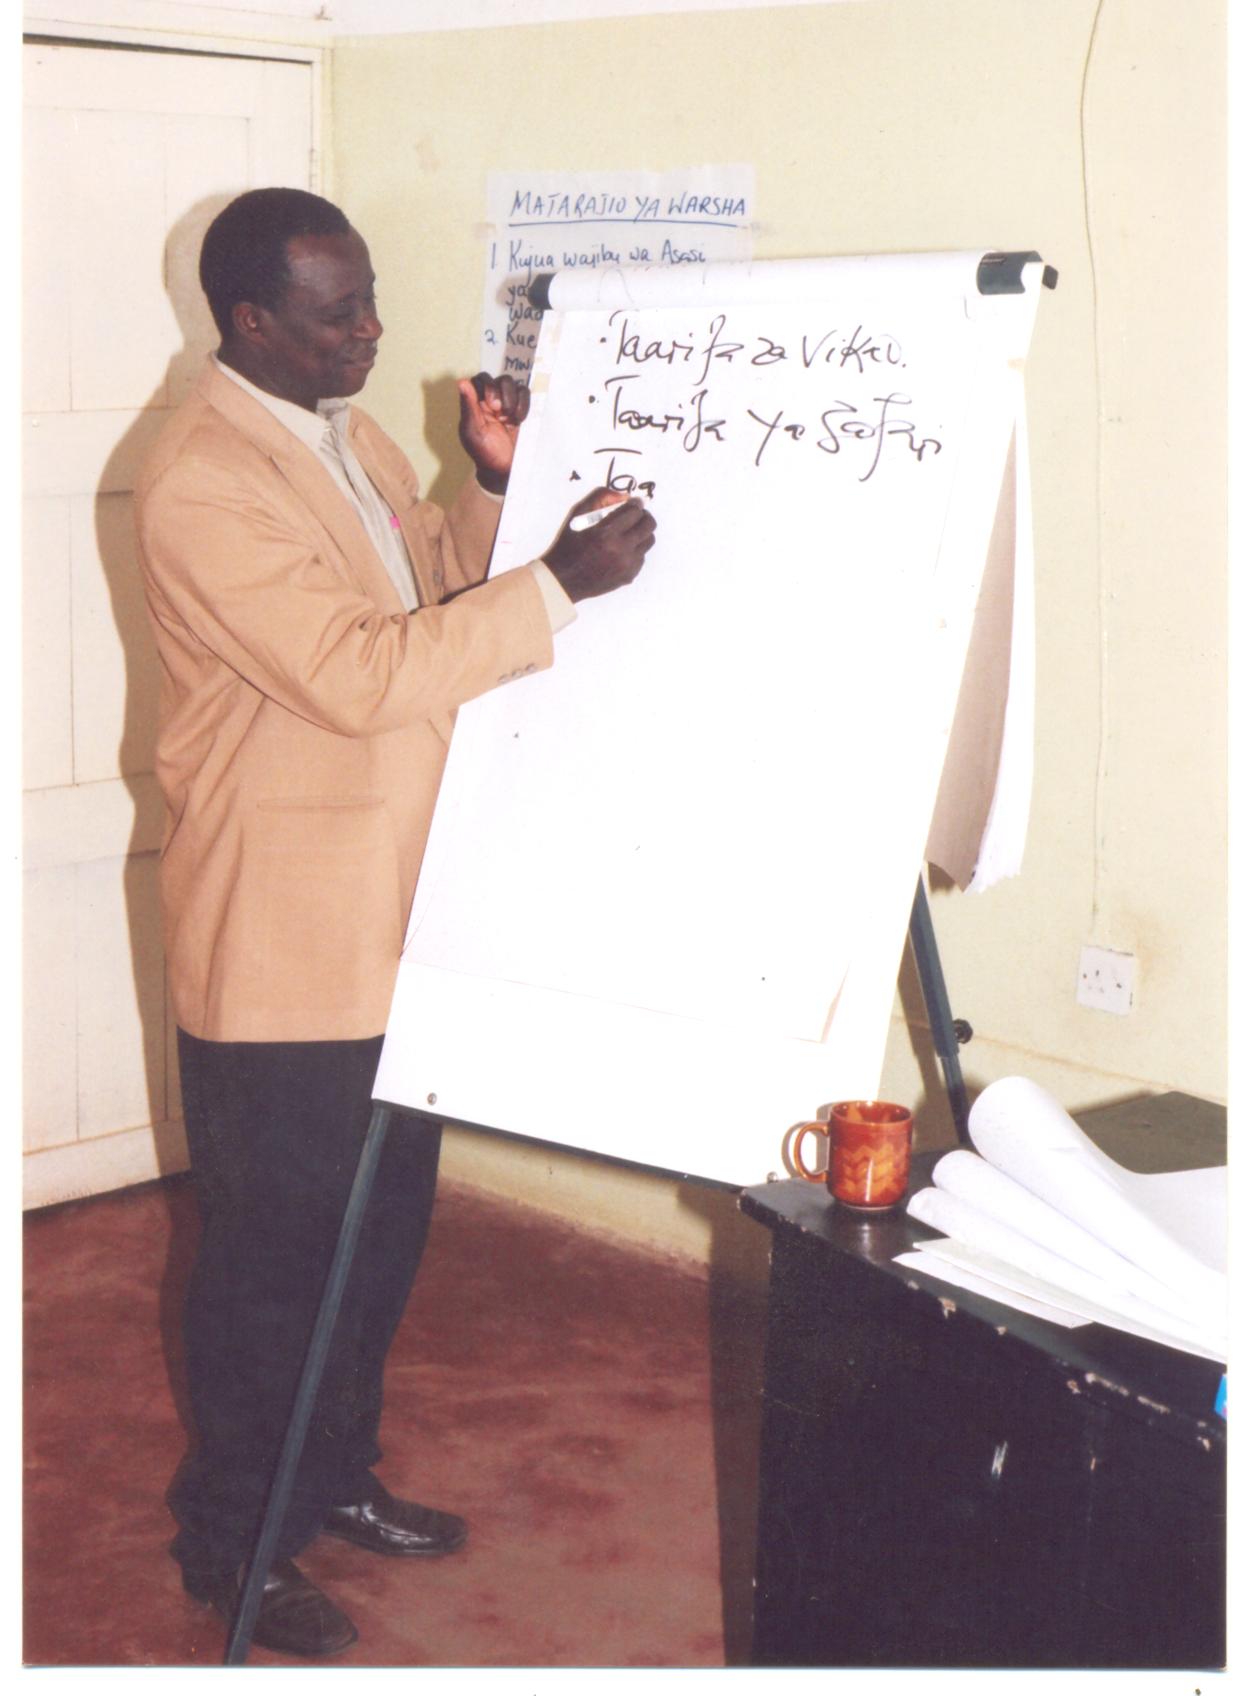 MATARAJIO YA WARSHA
1. Kujua wajibu wa Asasi
ya
2. Kue
• Taarifa za Vikao.
• Taarifa ya Safari
• Taa